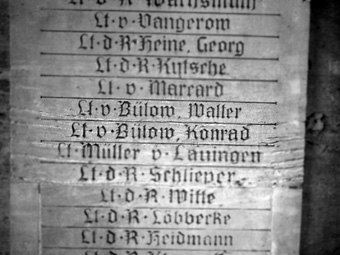 Lt·d·R·Wachsmuth
Lt·v·Vangerow
Lt·d·R·Heine, Georg
Lt·d·R·Kytsche
Lt·v·Marcard
Lt·v·Bülow, Walter
Lt·v·Bülow, Konrad
Lt·Müller v·Lauingen
Lt·d·R·Schlieper
Lt·d·R·Witte
Lt·d·R·Löbbecke
Lt·d·R·Heidmann
Lt·d·R·